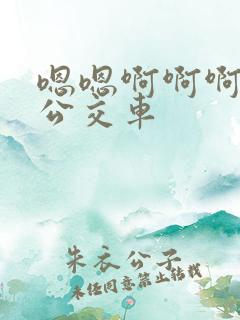 嗯嗯啊啊啊
公交车
朱衣公子
未经同意禁止转载